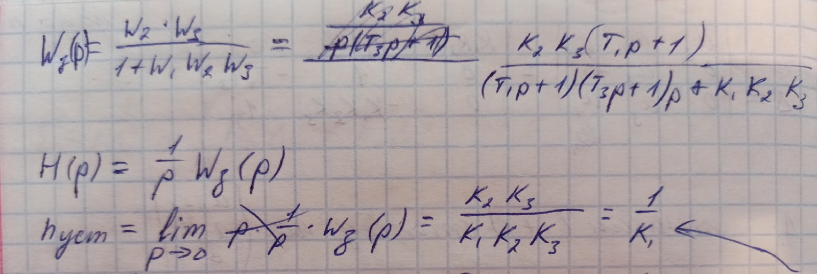 W_з(p) = (W₂ · W₃)/(1 + W₁ W₂ W₃) = (K₂ K₃)/(p(T₃p + 1)) (K₂ K₃(T₁p + 1))/((T₁p + 1)(T₃p + 1)p + K₁ K₂ K₃)
H(p) = 1/p W_з(p)
h уст = lim p→0 p · 1/p · W_з(p) = (K₂ K₃)/(K₁ K₂ K₃) = 1/K₁ ←